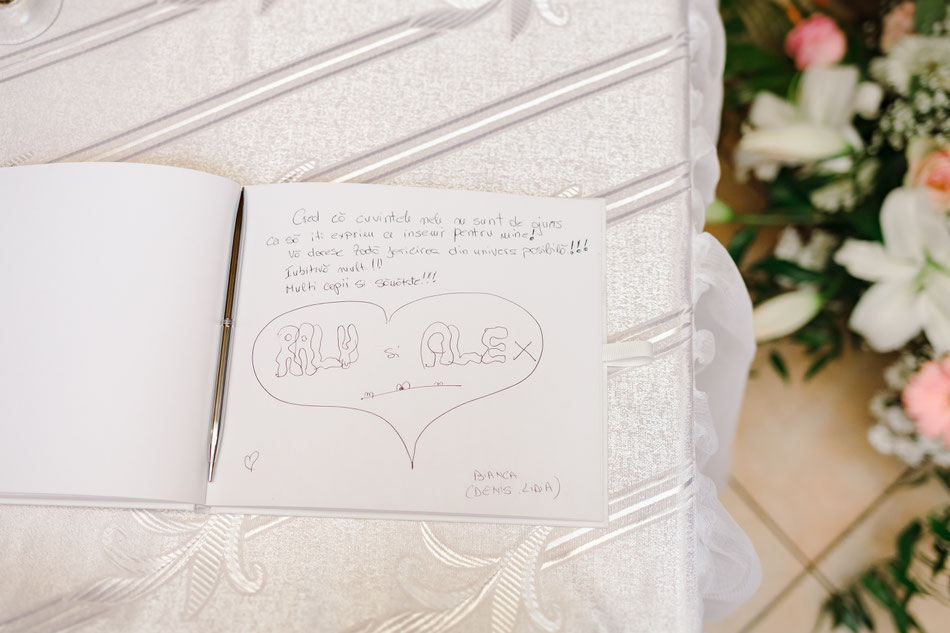 Cred că cuvintele mele nu sunt de ajuns
ca să iti exprim ce insemi pentru mine!
Vă doresc toată fericirea din univers posibilă!!!
Iubitivă mult!!!
Multi copii si sănătate!!!
RALU si ALEX
BIANCA
(DENIS, LIDIA)